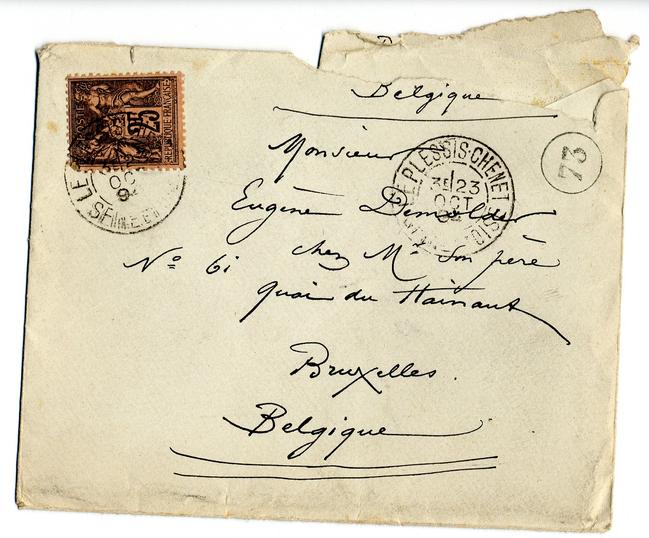 Belgique
Monsieur
Eugène Demolder
chez Mr Son père
No 61
quai du Hainaut
Bruxelles.
Belgique
POSTES
25
REPUBLIQUE FRANÇAISE
LE
OC
9
SEINE ET
LE PLESSIS-CHENET
3E 23
OCT
73